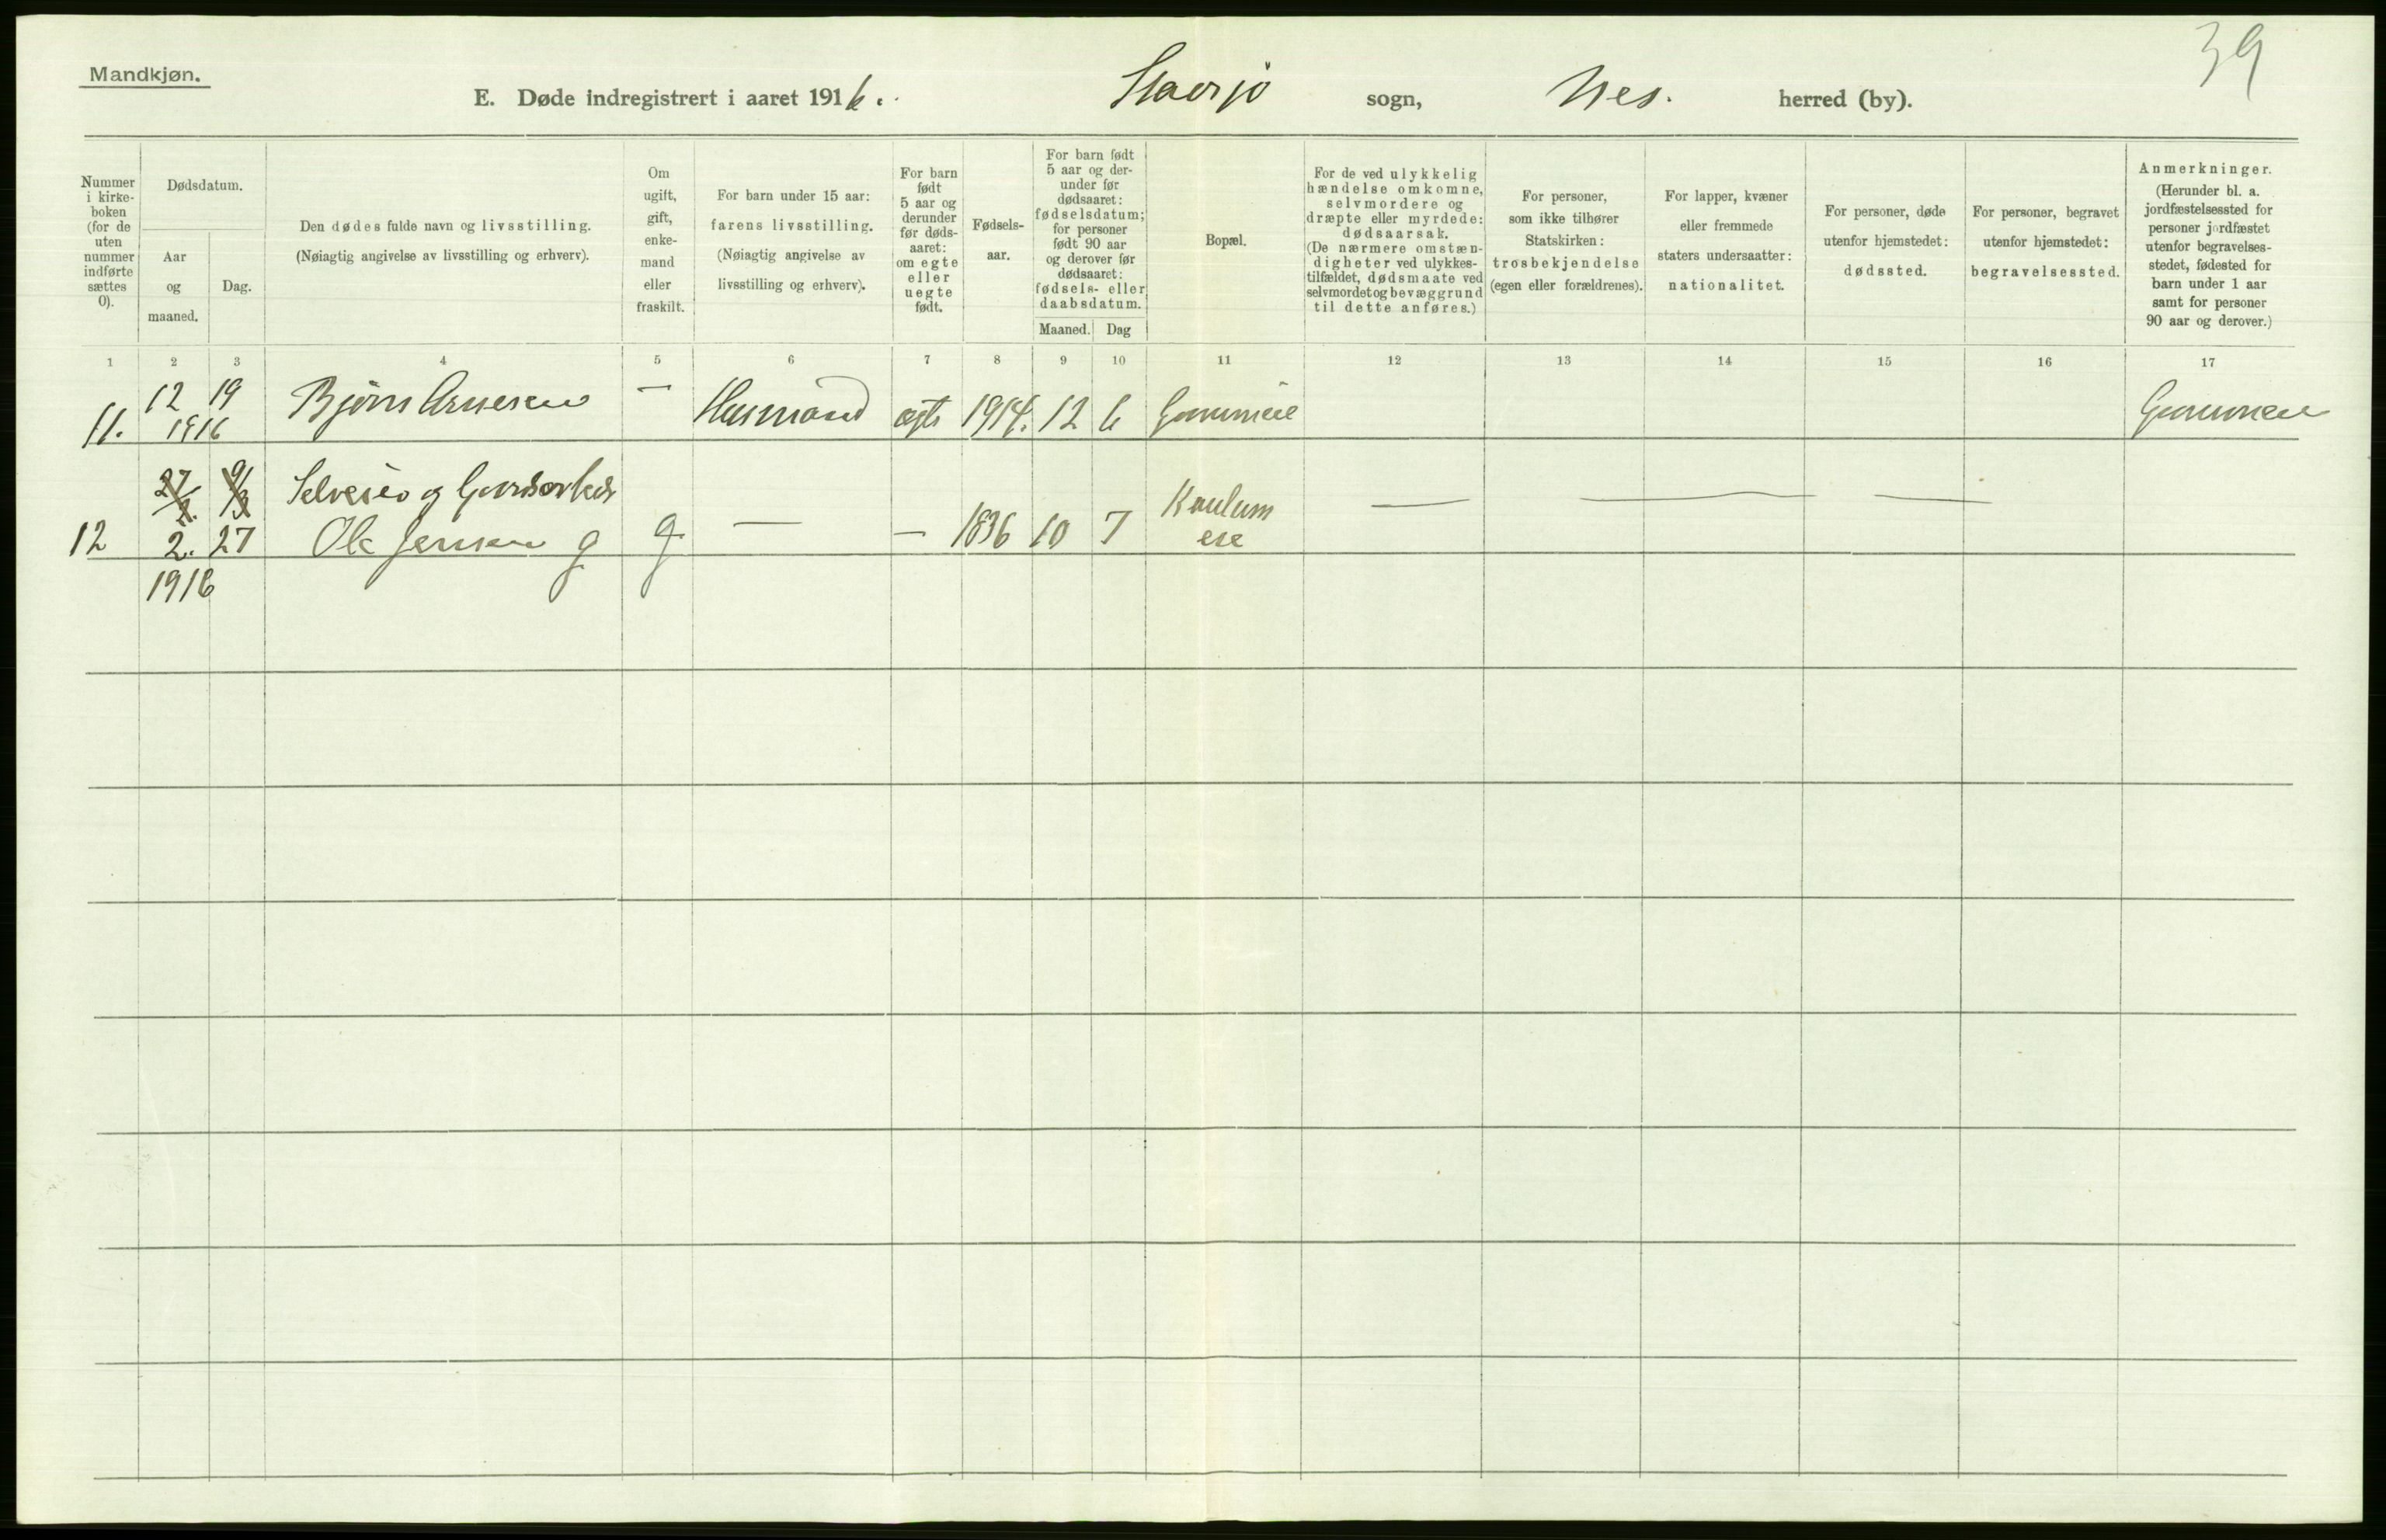 39
Mandkjøn.
E. Døde indregistrert i aaret 1916. Stavsjø sogn, Nes. herred (by).
Nummer
i kirke-
boken
(for de
uten
nummer
indførte
sættes
0).
Dødsdatum.
Aar
og
maaned.
Dag.
Den dødes fulde navn og livsstilling.
(Nøiagtig angivelse av livsstilling og erhverv).
Om
ugift,
gift,
enke-
mand
eller
fraskilt.
For barn under 15 aar:
farens livsstilling.
(Nøiagtig angivelse av
livsstilling og erhverv).
For barn
født
5 aar og
derunder
før døds-
aaret:
om egte
eller
uegte
født.
Fødsels-
aar.
For barn født
5 aar og der-
under før
dødsaaret:
fødselsdatum;
for personer
født 90 aar
og derover før
dødsaaret:
fødsels- eller
daabsdatum.
Maaned. Dag
Bopæl.
For de ved ulykkelig
hændelse omkomne,
selvmordere og
dræpte eller myrdede:
dødsaarsak.
(De nærmere omstæn-
digheter ved ulykkes-
tilfældet, dødsmaate ved
selvmordet og bevæggrund
til dette anføres.)
For personer,
som ikke tilhører
Statskirken:
trosbekjendelse
(egen eller forældrenes).
For lapper, kvæner
eller fremmede
staters undersaatter:
nationalitet.
For personer, døde
utenfor hjemstedet:
dødssted.
For personer, begravet
utenfor hjemstedet:
begravelsessted.
Anmerkninger.
(Herunder bl. a.
jordfæstelsessted for
personer jordfæstet
utenfor begravelses-
stedet, fødested for
barn under 1 aar
samt for personer
90 aar og derover.)
1 2 3 4 5 6 7 8 9 10 11 12 13 14 15 16 17
12 19 Bjørn Arnesen —
11. 1916 Husmand egte 1914. 12 6
27/2. 9/3 Selveier og Gaardarbeider
12 2. 27 Ole Jensen g g — — 1836 10 7
1916